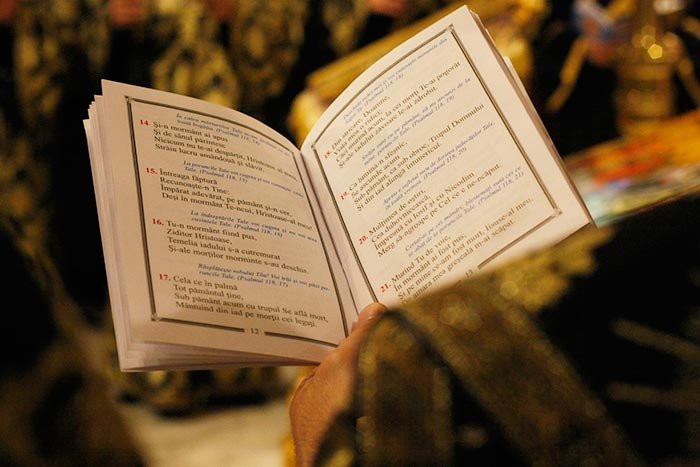 În calea mărturiilor Tale m-am
14 Şi-n mormânt ai apus
Şi de sânul părintesc
Nicicum nu te-ai despărţit, Hristoase al meu,
Străin lucru amândouă şi sfânt.
La poruncile Tale voi cugeta şi voi cunoaşte căile
Tale. (Psalmul 118, 15)
15. Întreaga făptură
Recunoaşte-n Tine:
Împărat adevărat, pe pământ şi-n cer,
Deşi în mormânt Te-ncui, Hristoase-al meu.
La îndreptările Tale voi cugeta şi nu voi uita
cuvintele Tale. (Psalmul 118, 16)
16. Tu-n mormânt fiind pus,
Ziditor Hristoase,
Temelia iadului s-a cutremurat
Şi-ale morţilor morminte s-au deschis.
Răsplăteşte robului Tău! Voi trăi şi voi păzi po-
runcile Tale. (Psalmul 118, 17)
17. Cela ce în palmă
Tot pământul ţine,
Sub pământ acum cu trupul Se află mort,
Mântuind din iad pe morţii cei legaţi.
12
Deschide ochii mei şi voi cunoaşte minunile din
(Psalmul 118, 18)
18. Din stricare, Doamne,
Viaţa mea o aduci,
Căci murind acum, la cei morţi Te-ai pogorât
Şi-ale iadului zăvoare le-ai zdrobit.
Străin sunt eu pe pământ, să nu ascunzi de la
mine poruncile Tale. (Psalmul 118, 19)
19. Ca lumina-n sfeşnic,
Sub pământ acum, Trupul Domnului
Şi din iad alungă întunericul.
Aprins e sufletul meu de dorirea judecăţilor Tale,
în toată vremea. (Psalmul 118, 20)
20. Mulţimea de oştiri,
Cea duhovnicească,
Împreună cu Iosif şi cu Nicodim
Merg să-ngroape pe Cel ce e ne'ncăput.
Certat-ai pe cei mândri; blestemaţi sunt cei ce
se abat de la poruncile Tale. (Psalmul 118, 21)
21. Murind Tu de voie,
În mormânt ai fost pus,
Şi pe mine
amara mea greşeală m-ai scăpat.
13